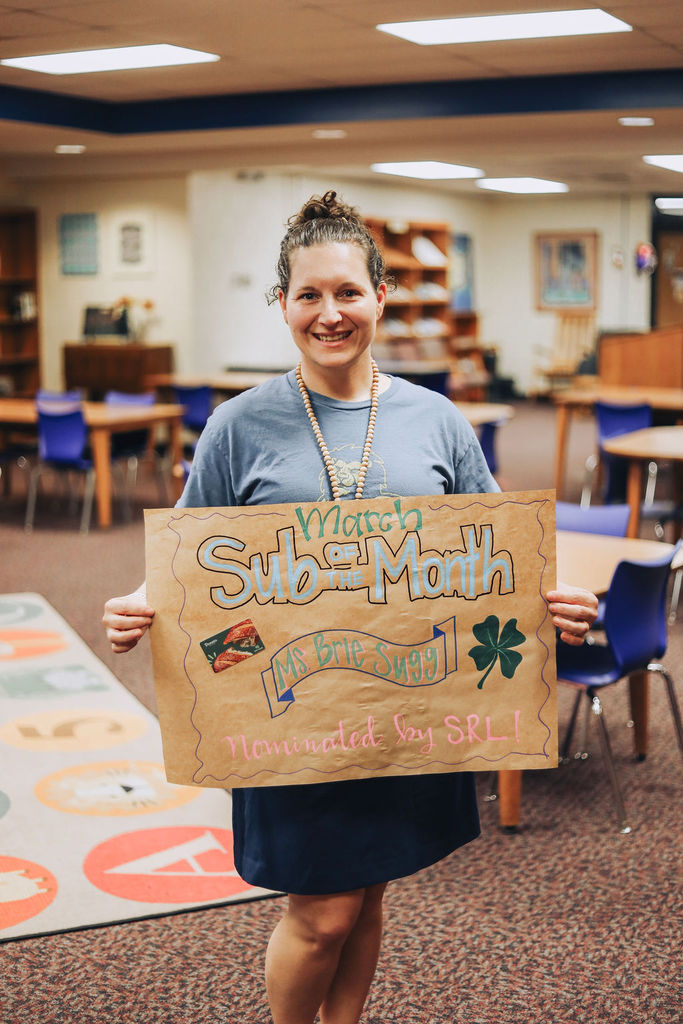 March
Sub OF THE Month
Ms Brie Sugg
Nominated by SRL!
A